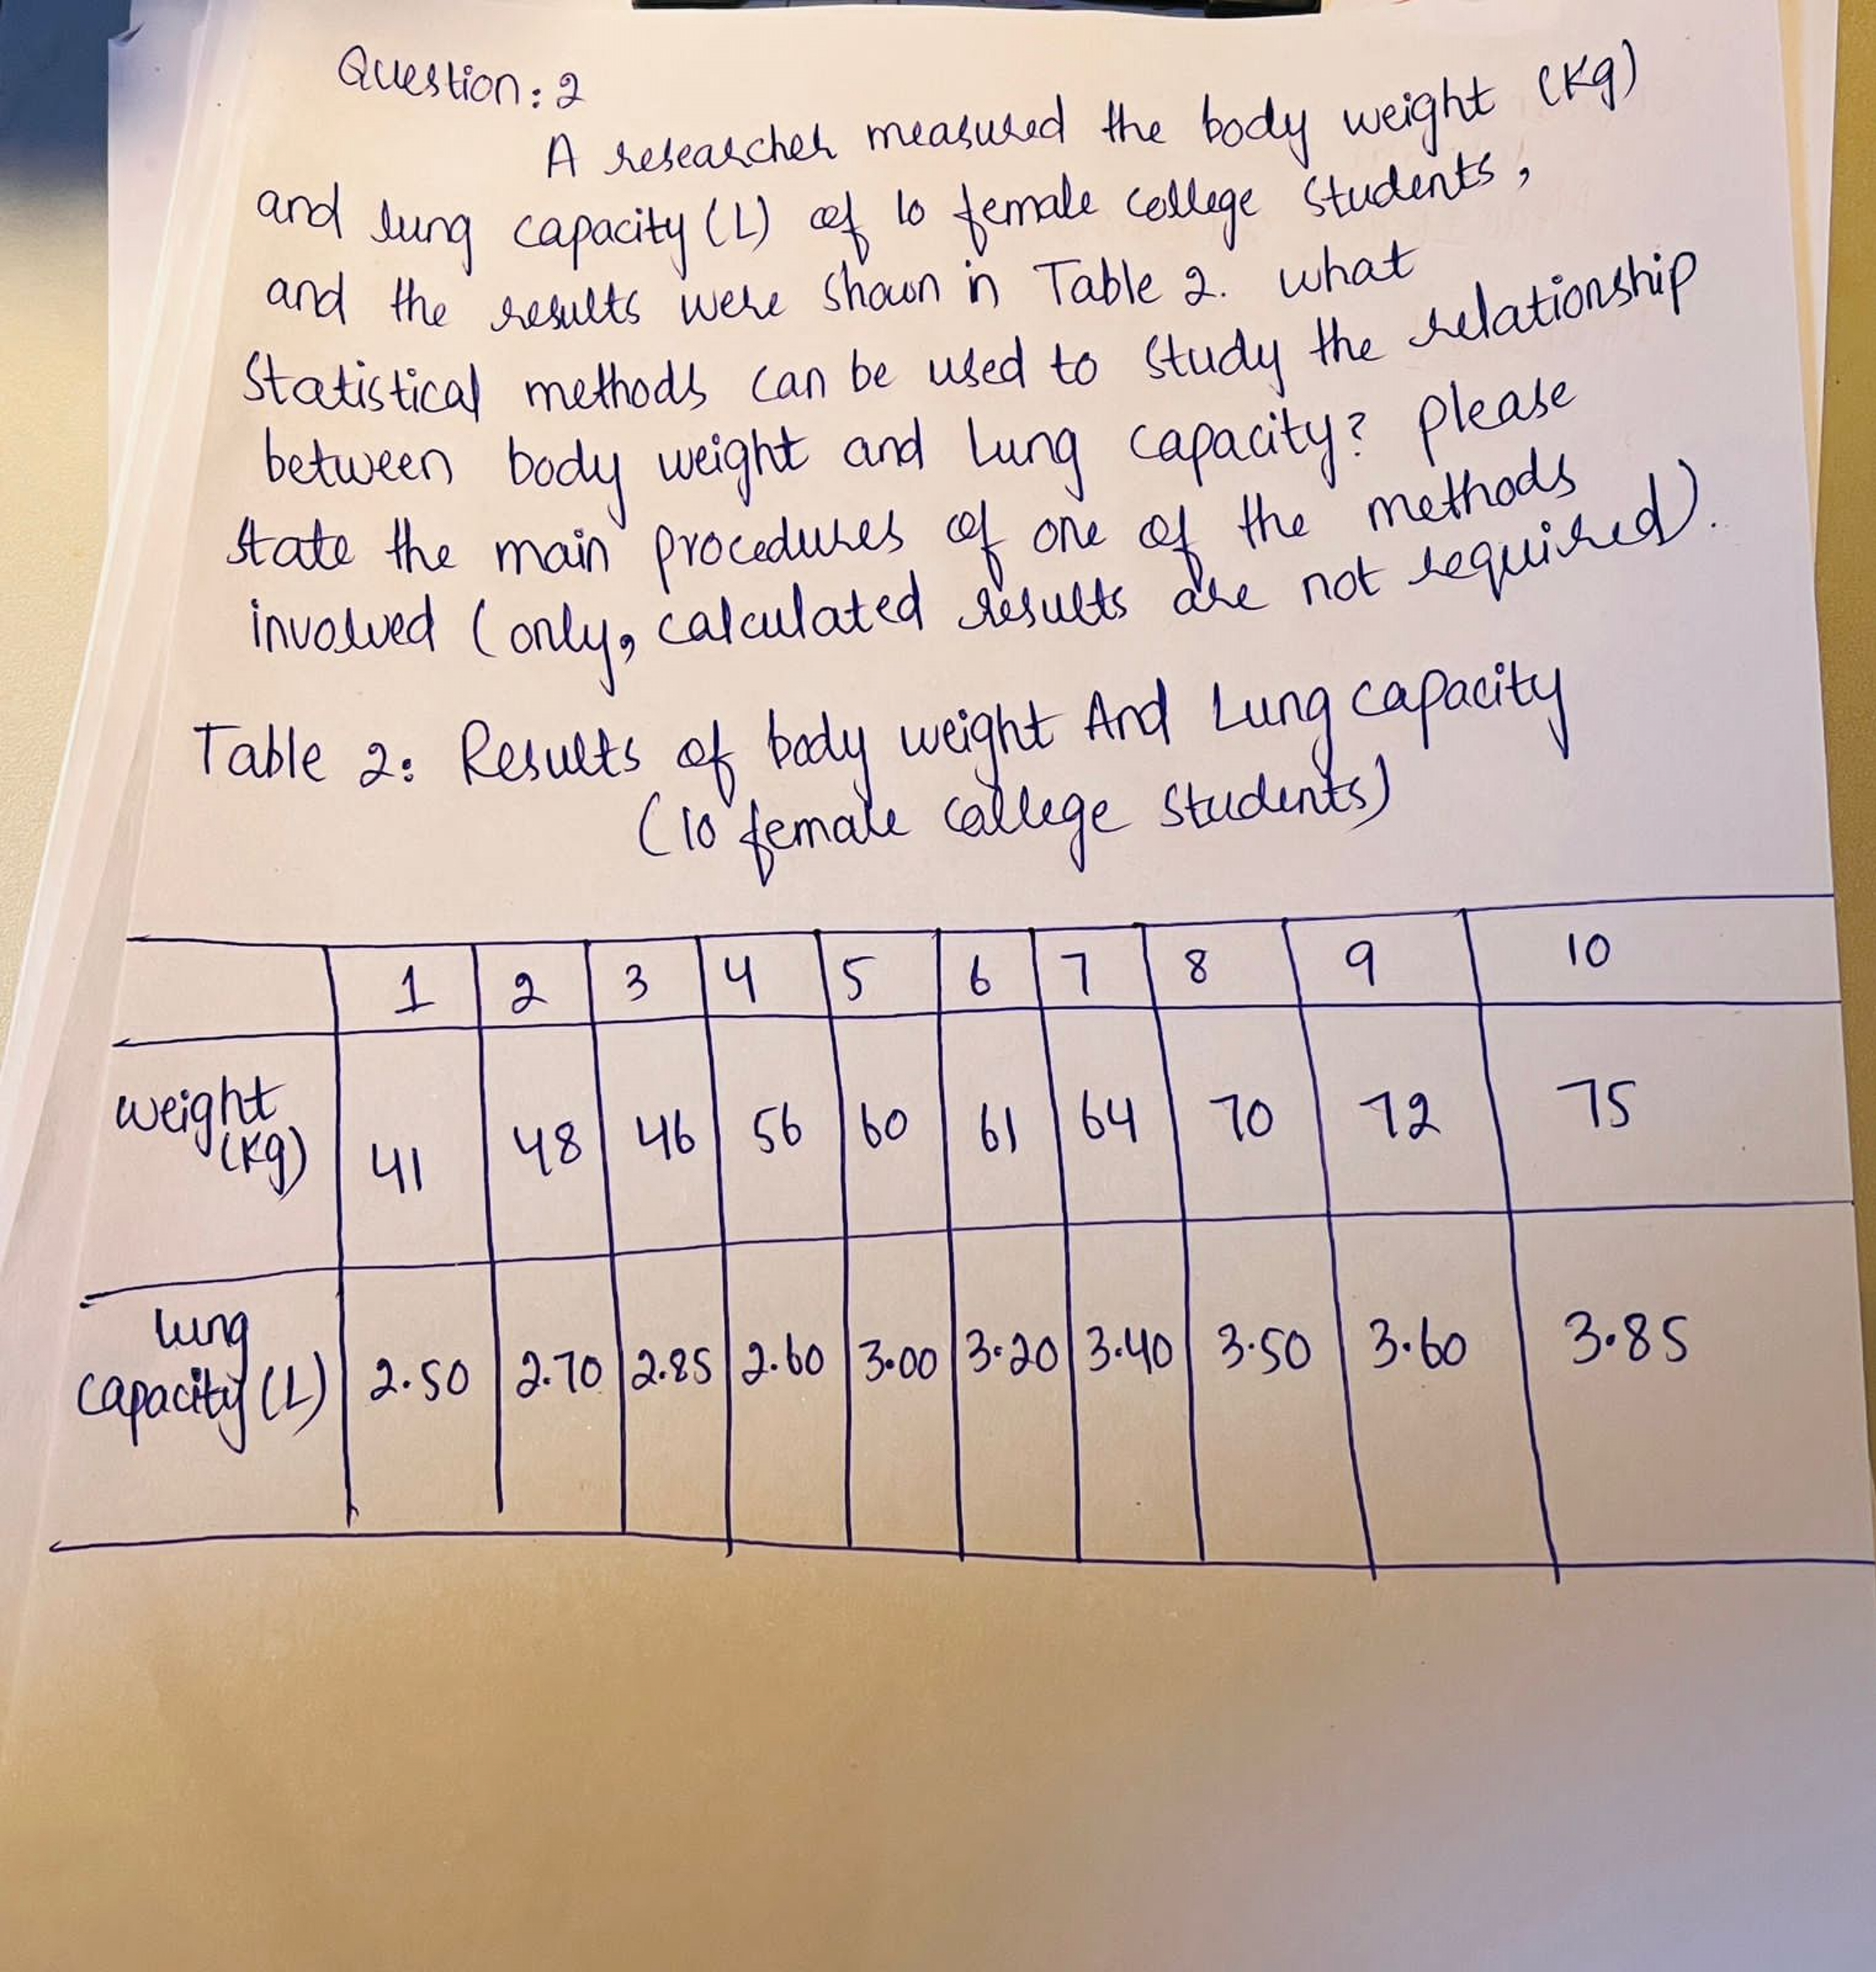 Question: 2
A researcher measured the body weight (Kg)
and lung capacity (L) of 10 female college students,
and the results were shown in Table 2. what
Statistical methods can be used to study the relationship
between body weight and Lung capacity? please
state the main procedures of one of the methods
involved (only, calculated results are not required).
Table 2: Results of body weight And Lung capacity
(10 female college students)
1 2 3 4 5 6 7 8 9 10
weight (Kg) 41 48 46 56 60 61 64 70 72 75
lung capacity (L) 2.50 2.70 2.85 2.60 3.00 3.20 3.40 3.50 3.60 3.85